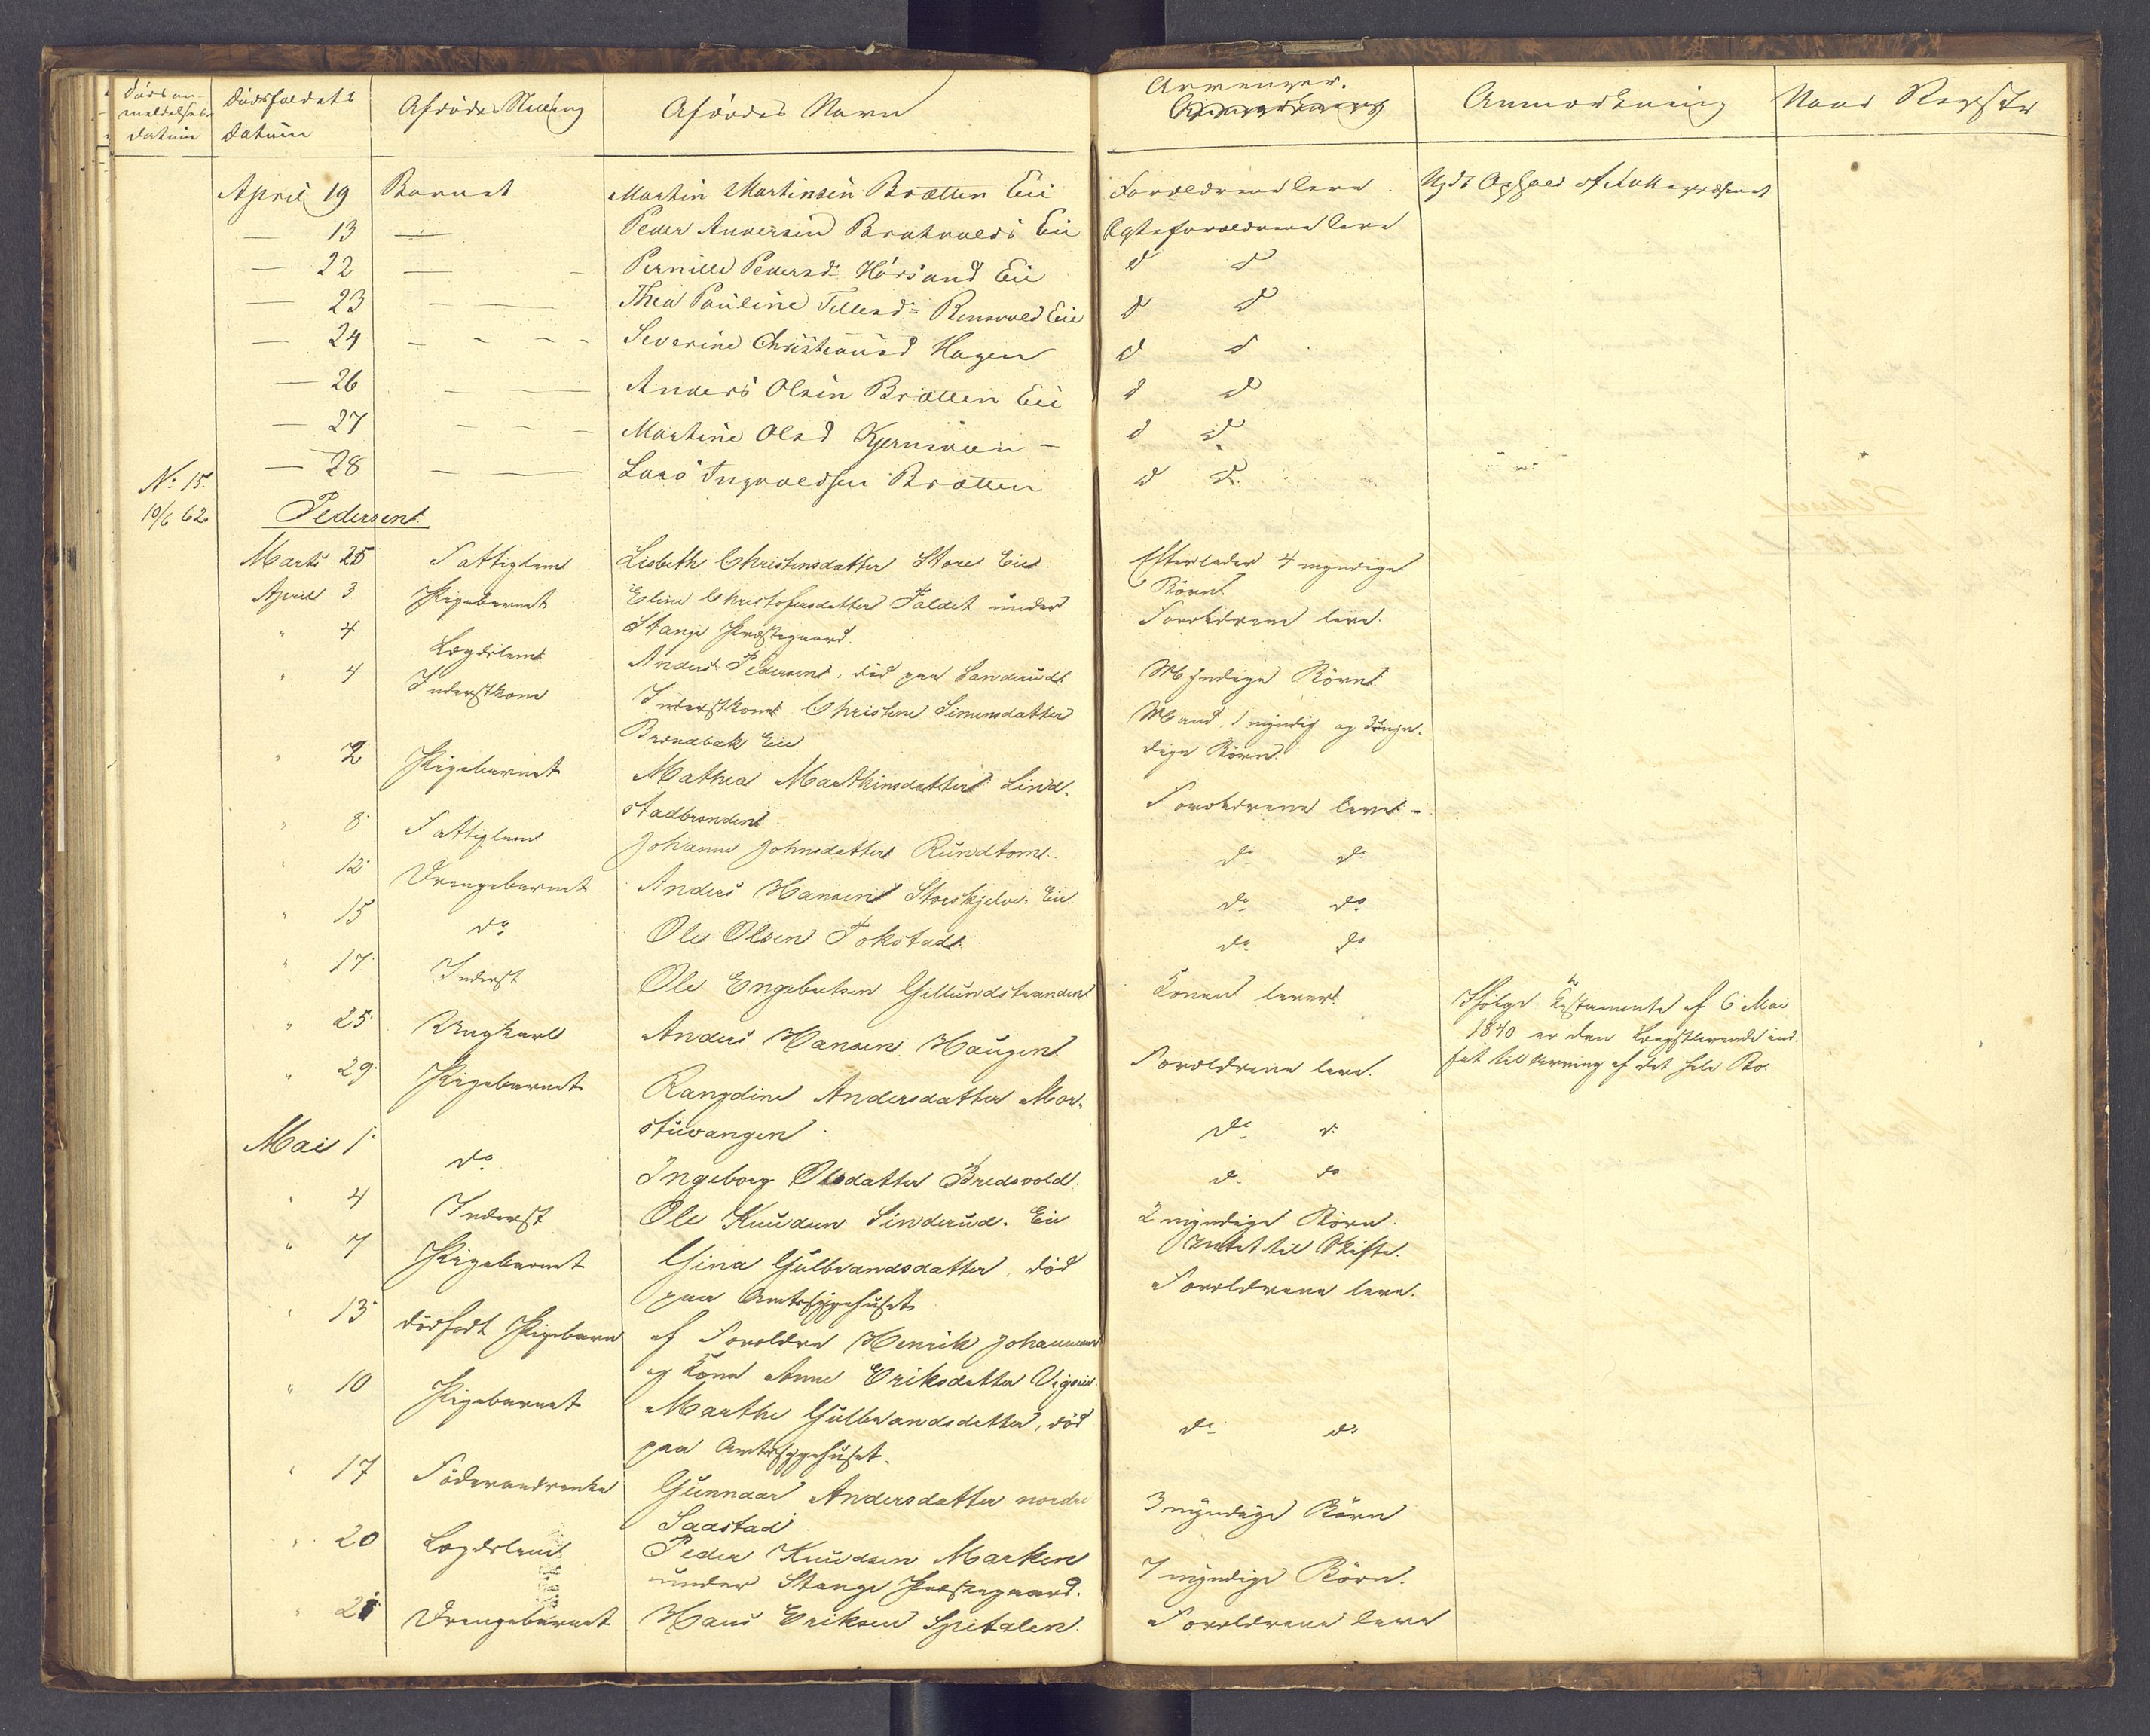 Dødsan-
meldelsens
Datum
Dødsfaldets
Datum
Afdødes Stilling
Afdødes Navn
Arvinger.
Anmærkning
Naar
April 19 Barnet Martin Martinsen Bratten Eie Forældrene leve.
— 13 — Peder Andersen Eie Ægteforældrene leve
— 22 — Pernille Pedersd. Eie d d
— 23 — Thea Pauline Eie d d
— 24 — Severine Hagen d d
— 26 — Anders Olsen Bratten Eie d d
— 27 — Martine Olsd d d
— 28 — Lars Ingvaldsen Bratten d d
No 15.
10/6 62. Pedersen
Marts 25 Fattiglem Lisbeth Christensdatter Eie. Efterlader 4 myndige
Børn.
April 3 Pigebarnet Eline Christofersdatter Faldet under Forældrene leve.
Stange Præstegaard.
" 4 Lægdslem Anders Pedersen, død paa Sanderud. Myndige Børn.
" 4 Inderstkone Inderstkone Christine Simensdatter Mand, 1 myndig og
Eie dige Børn.
" 2 Pigebarnet Mathea Marthinsdatter Lind-
stadbranden. Forældrene leve -
" 8 Fattiglem Johanne Johnsdatter Rundtom. do do
" 12 Drengebarnet Anders Hansen Eie do do
" 15 do Ole Olsen Tokstad. do do
" 17 Inderst Ole Engebretsen Gillundstranden Konen lever. Ifølge Testamente af 6 Mai
1840 er den Længstlevende ind-
sat til Arving af det hele Bo.
" 25 Ungkarl Anders Hansen Haugen. Forældrene leve.
" 29 Pigebarnet Rangdine Andersdatter Mor-
stuvangen. do do
Mai 1 do Ingeborg Olsdatter Bredsvold. do do
" 4 Inderst Ole Knudsen Sinderud. Eie 2 myndige Børn.
Intet til Skifte.
" 7 Pigebarnet Gina Gulbrandsdatter, død Forældrene leve.
paa Amtssygehuset
" 13 dødfødt Pigebarn af Forældre Henrik Johannesen
og Kone Anne Eriksdatter
" 10 Pigebarnet Marthe Gulbrandsdatter, død do do
paa Amtssygehuset.
" 17 Føderaadsenke Gunnaar Andersdatter nordre 3 myndige Børn
Saastad
" 20 Lægdslem Peder Knudsen Marken 7 myndige Børn.
under Stange Præstegaard.
" 21 Drengebarnet Hans Eriksen Spitalen. Forældrene leve